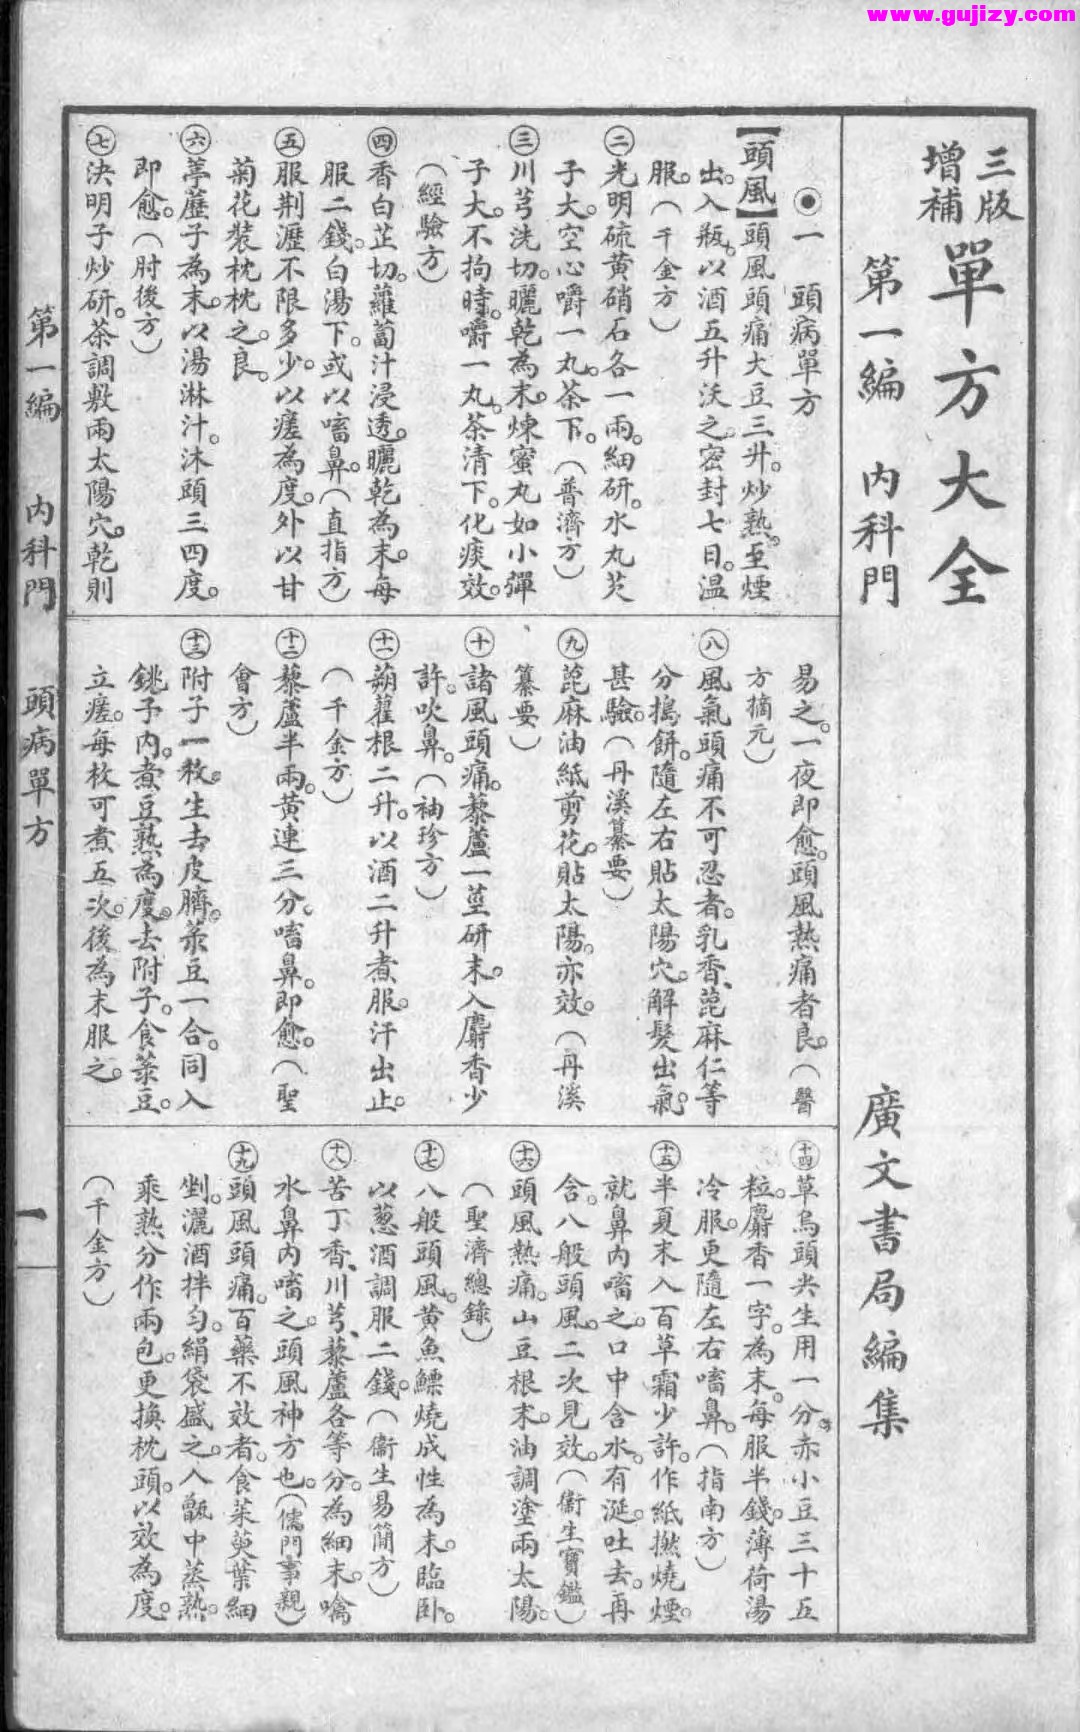 www.gujizy.com
三版
增補
單方大全
第一編　內科門　廣文書局編集
◉一　頭病單方
【頭風】頭風頭痛大豆三升。炒熟。至煙
出。入瓶。以酒五升沃之。密封七日。溫
服。（千金方）
㊁光明硫黃硝石各一兩。細研。水丸芡
子大。空心嚼一丸。茶下。（普濟方）
㊂川芎洗切。曬乾為末。煉蜜丸如小彈
子大。不拘時。嚼一丸。茶清下。化痰效。
（經驗方）
㊃香白芷切。蘿蔔汁浸透。曬乾為末。每
服二錢。白湯下。或以㗜鼻。（直指方）
㊄服荆瀝不限多少。以瘥為度。外以甘
菊花裝枕枕之。良。
㊅葶藶子為末。以湯淋汁。沐頭三四度。
即愈。（肘後方）
㊆決明子炒研。茶調敷兩太陽穴。乾則
易之。一夜即愈。頭風熱痛者良。（醫
方摘元）
㊇風氣頭痛不可忍者。乳香、蓖麻仁等
分搗餅。隨左右貼太陽穴。解髮出氣。
甚驗。（丹溪纂要）
㊈蓖麻油紙剪花。貼太陽。亦效。（丹溪
纂要）
㊉諸風頭痛。藜蘆一莖研末。入麝香少
許。吹鼻。（袖珍方）
十一蒴藋根二升。以酒二升煮服。汗出止。
（千金方）
十二藜蘆半兩。黃連三分。㗜鼻。即愈。（聖
會方）
十三附子一枚。生去皮臍。菉豆一合。同入
銚子內。煮豆熟為度。去附子。食菉豆。
立瘥。每枚可煮五次。後為末服之。
十四草烏頭尖生用一分。赤小豆三十五
粒。麝香一字。為末。每服半錢。薄荷湯
冷服。更隨左右㗜鼻。（指南方）
十五半夏末入百草霜少許。作紙撚燒煙。
就鼻內㗜之。口中含水。有涎。吐去。再
含。八般頭風。二次見效。（衞生寶鑑）
十六頭風熱痛。山豆根末。油調塗兩太陽。
（聖濟總錄）
十七八般頭風。黃魚鰾燒成性為末。臨卧。
以葱酒調服二錢。（衞生易簡方）
十八苦丁香、川芎、藜蘆各等分。為細末。噙
水鼻內㗜之。頭風神方也。（儒門事親）
十九頭風頭痛。百藥不效者。食茱萸葉細
剉。灑酒拌勻。絹袋盛之。入甑中蒸熟。
乘熱分作兩包。更換枕頭。以效為度。
（千金方）
第一編　內科門　頭病單方
一